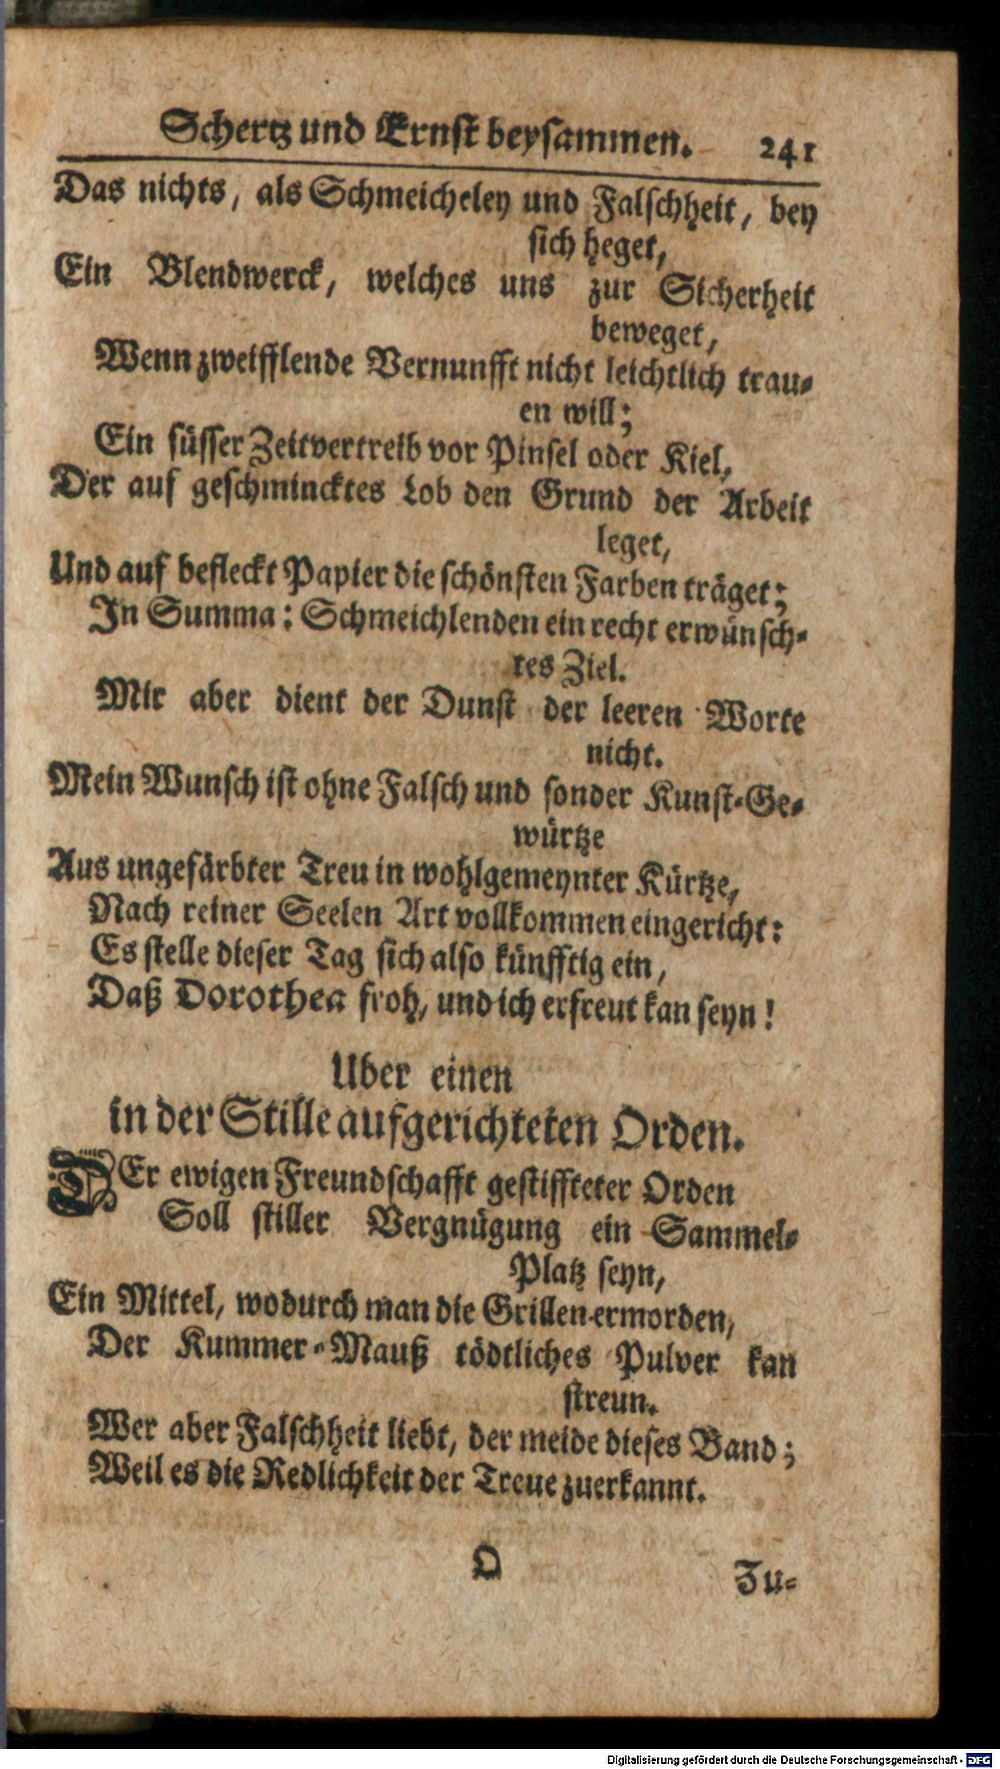 Schertz und Ernst beysammen. 241
Das nichts, als Schmeicheley und Falschheit, bey
sich heget,
Ein Blendwerck, welches uns zur Sicherheit
beweget,
Wenn zweifflende Vernunfft nicht leichtlich trau-
en will;
Ein süsser Zeitvertreib vor Pinsel oder Kiel,
Der auf geschmincktes Lob den Grund der Arbeit
leget,
Und auf befleckt Papier die schönsten Farben träget;
In Summa: Schmeichlenden ein recht erwünsch-
tes Ziel.
Mir aber dient der Dunst der leeren Worte
nicht.
Mein Wunsch ist ohne Falsch und sonder Kunst-Ge-
würtze
Aus ungefärbter Treu in wohlgemeynter Kürtze,
Nach reiner Seelen Art vollkommen eingericht:
Es stelle dieser Tag sich also künfftig ein,
Daß Dorothea froh, und ich erfreut kan seyn!
Uber einen
in der Stille aufgerichteten Orden.
DEr ewigen Freundschafft gestiffteter Orden
Soll stiller Vergnügung ein Sammel-
Platz seyn,
Ein Mittel, wodurch man die Grillen ermorden,
Der Kummer-Mauß tödtliches Pulver kan
streun.
Wer aber Falschheit liebt, der meide dieses Band;
Weil es die Redlichkeit der Treue zuerkannt.
Q
Zu-
Digitalisierung gefördert durch die Deutsche Forschungsgemeinschaft - DFG